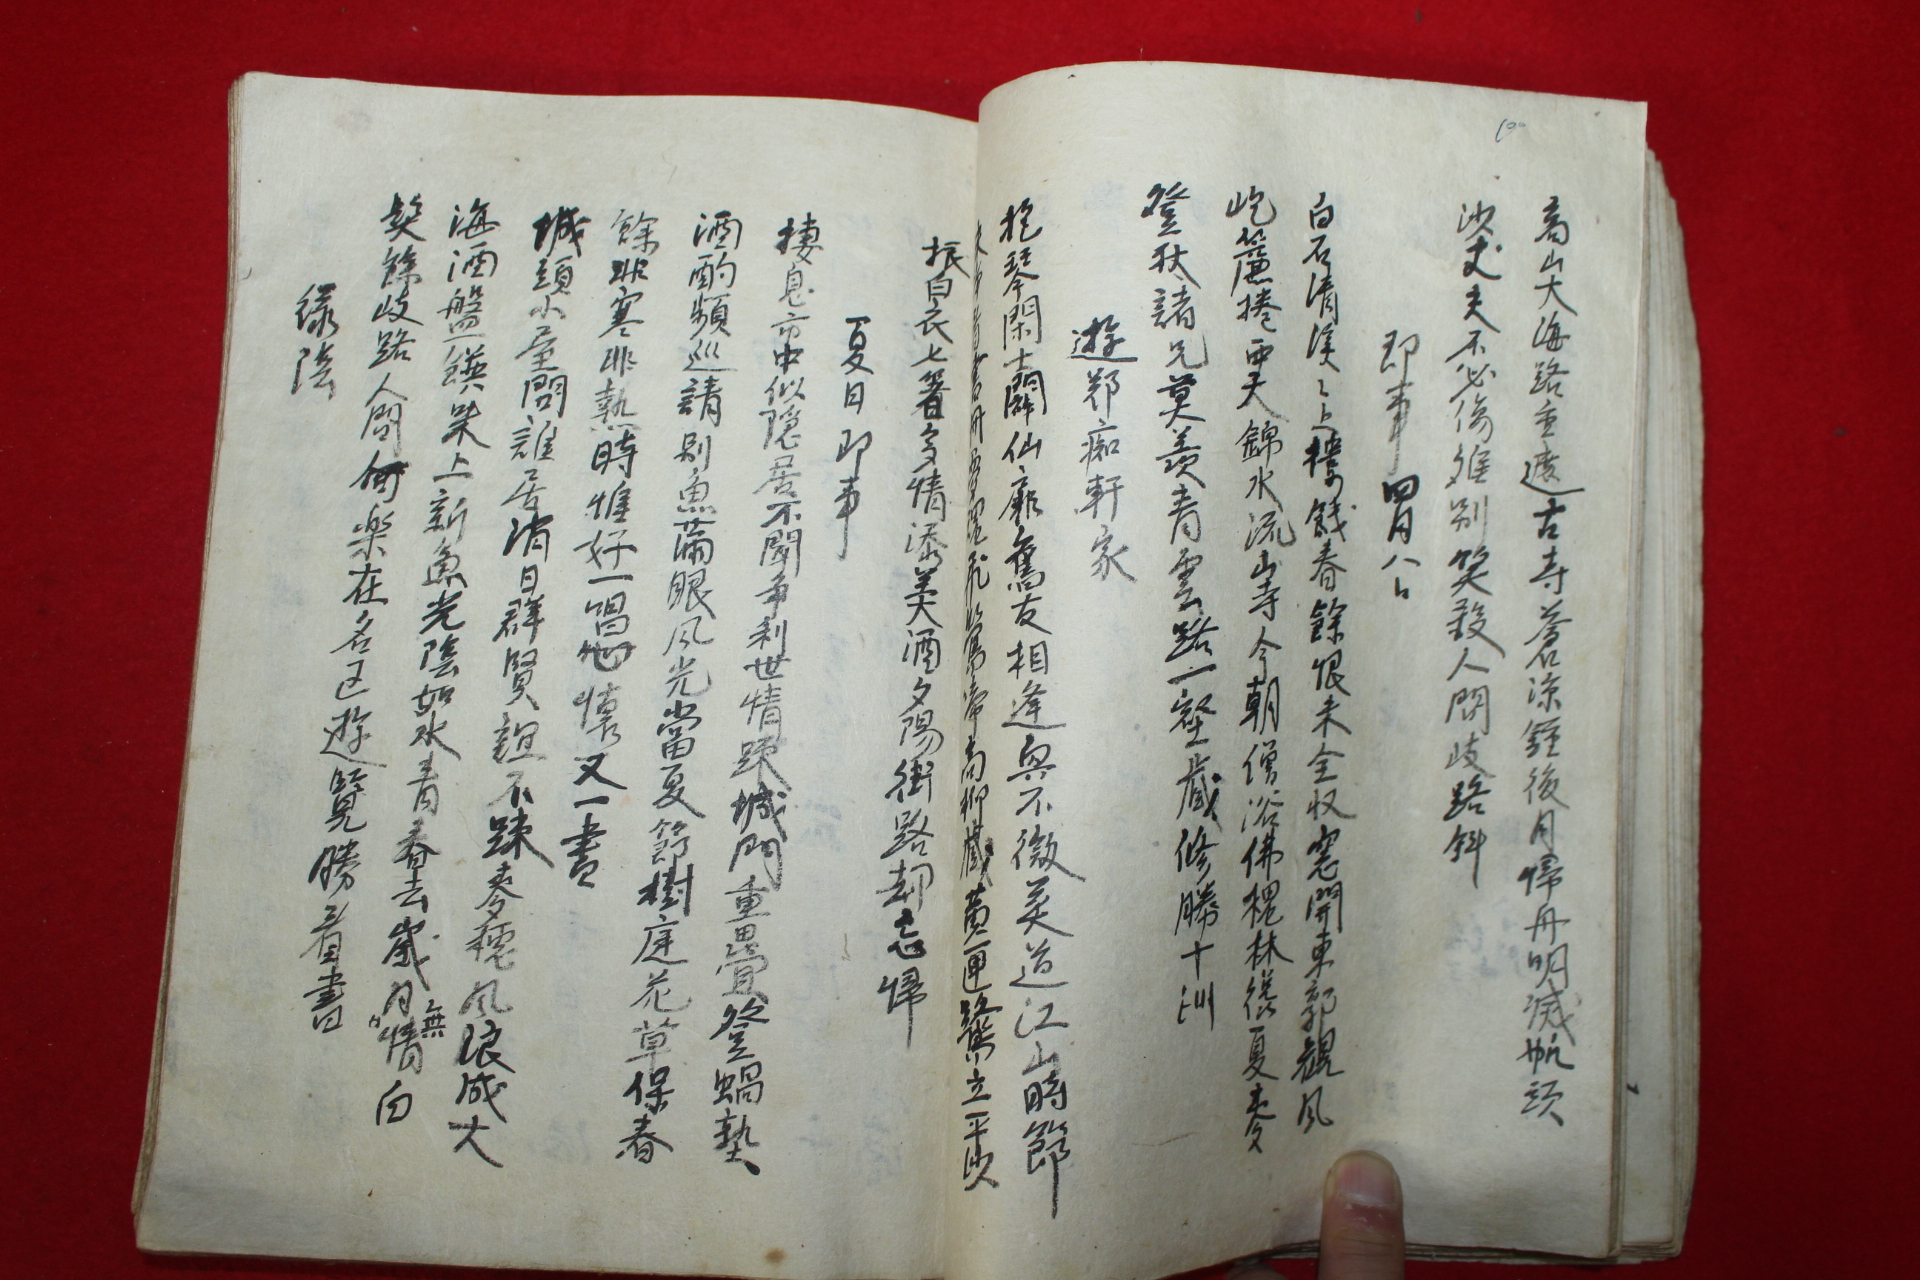 高山大海路重遮古寺蒼凉鍾後月帰舟明滅帆頭
沙丈夫不必傷離別笑殺人間岐路斜
即事 四月八日
白石清溪之上樓餞春餘恨未全收窓開東郭觀風
屹簾捲西天錦水流山寺今朝僧浴佛槐林後夏麥
登秋諸兄莫羨青雲路一壑藏修勝十洲
遊鄭痴軒家
抱琴閑士闢仙扉舊友相逢與不微芙道江山時節
高柳藏黃匣鷺立平沙
振白衣七箸多情添美酒夕陽街路却忘帰
夏日即事
棲息市中似隱居不聞爭利世情踈城門重疊登蝸蟄
酒酌頻巡請別魚滿眼風光當夏節樹庭花草保春
餘非寒非熱時惟好一唱他懷又一書
城頭小屋問誰居消日群賢誼不踈麥種風浪成大
海酒盤鎂味上新魚光陰如水青春去歲月無情白
髮餘岐路人間何樂在名区遊覽勝看書
綠陰